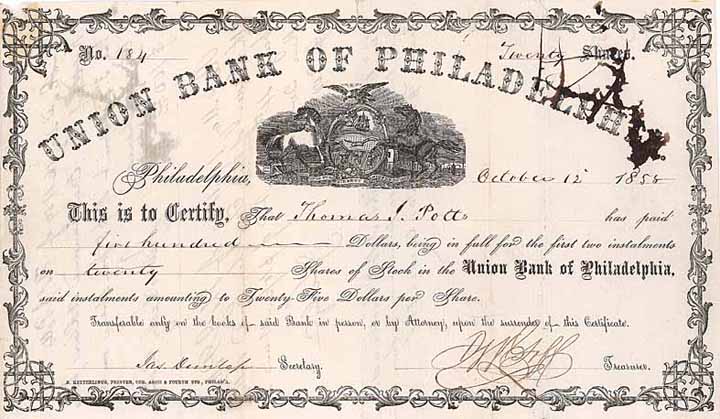 No. 184 Twenty Shares.
UNION BANK OF PHILADELPH
Philadelphia, October 12 1858
This is to Certify, That Thomas J. Potts has paid
five hundred Dollars, being in full for the first two instalments
on twenty Shares of Stock in the Union Bank of Philadelphia,
said instalments amounting to Twenty-Five Dollars per Share.
Transferable only on the books of said Bank in person, or by Attorney, upon the surrender of this Certificate.
Jas. Dunlap Secretary. Treasurer.
PRINTER, COR. ARCH & FOURTH STS., PHILAD'A.